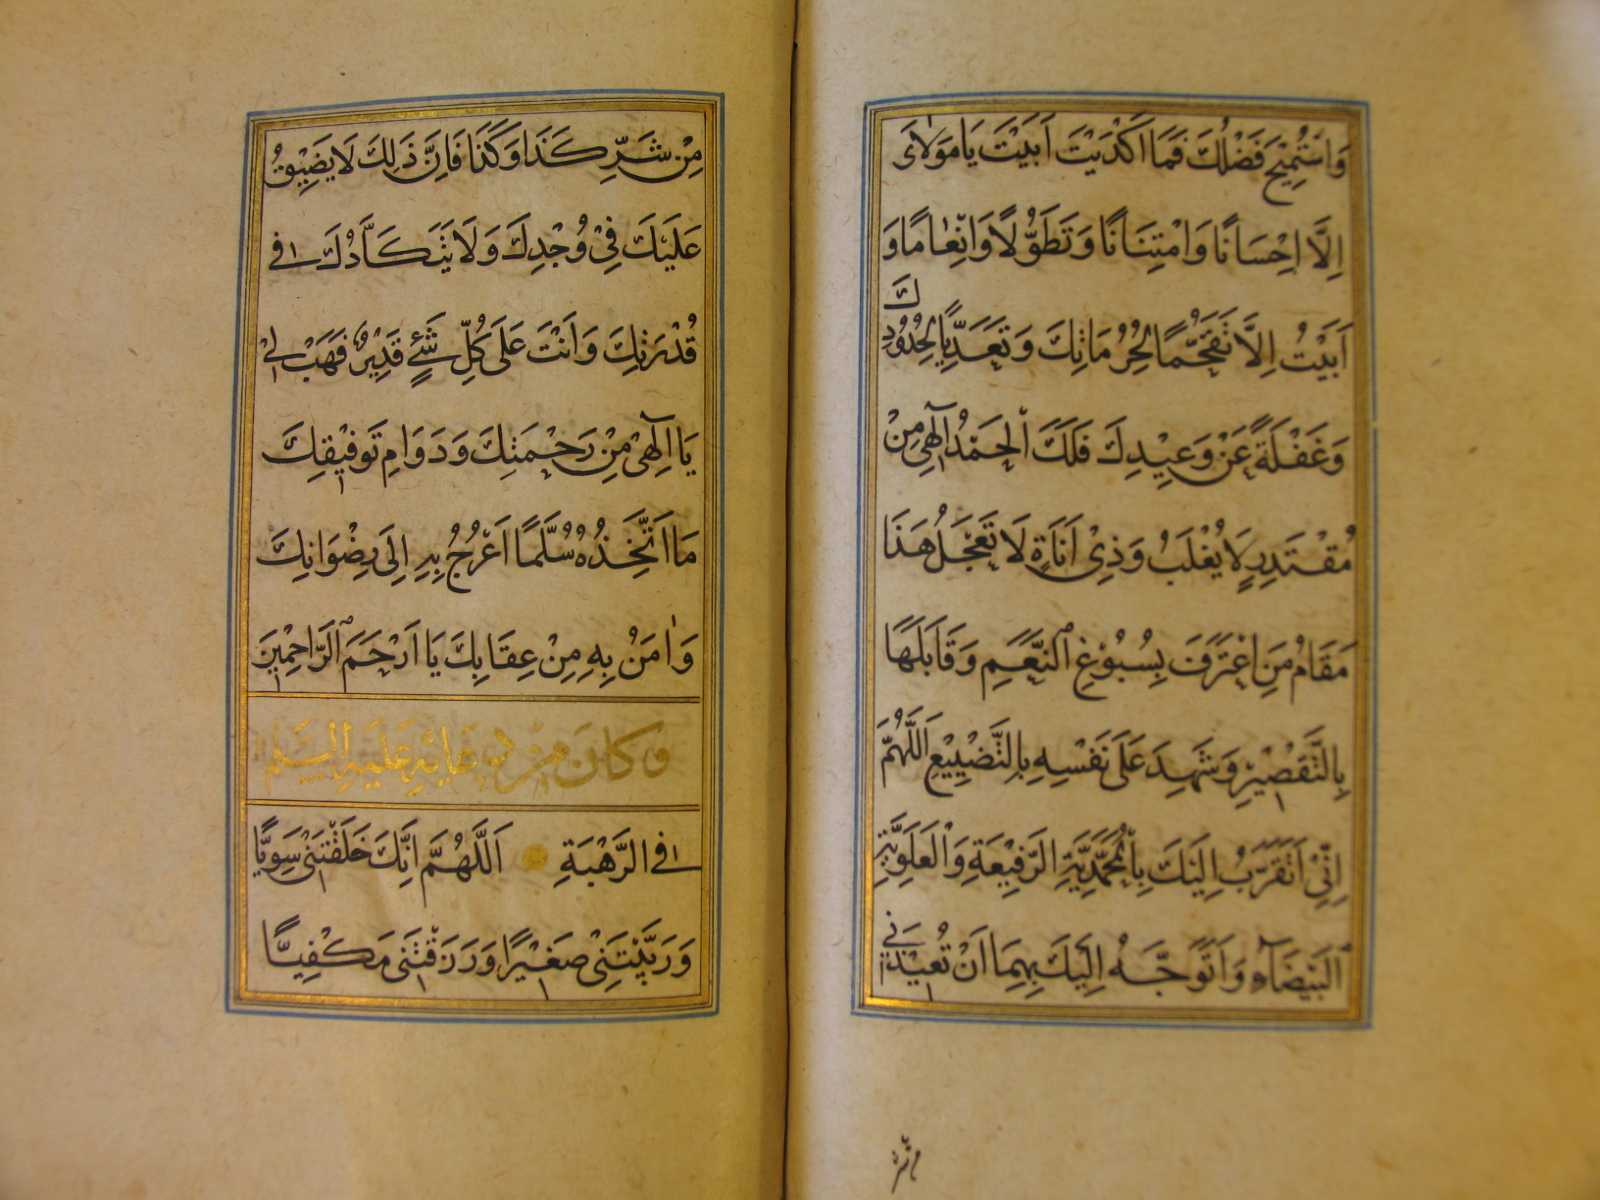 وَاسْتُمِيحَ فَضْلُكَ فَمَا اَكْدَيْتَ اَبَيْتَ يَا مَوْلَاىَ
اِلَّا اِحْسَانًا وَامْتِنَانًا وَتَطَوُّلًا وَاِنْعَامًا وَ
اَبَيْتُ اِلَّا تَقَحُّمًا لِحُرُمَاتِكَ وَتَعَدِّيًا لِحُدُودِكَ
وَغَفْلَةً عَنْ وَعِيْدِكَ فَلَكَ الْحَمْدُ اِلٰهِى مِنْ
مُقْتَدِرٍ لَا يُغْلَبُ وَذِىْ اَنَاةٍ لَا تَعْجَلُ هَذَا
مَقَامُ مَنِ اعْتَرَفَ بِسُبُوْغِ النِّعَمِ وَقَابَلَهَا
بِالتَّقْصِيْرِ وَشَهِدَ عَلَى نَفْسِهِ بِالتَّضْيِيْعِ اَللّٰهُمَّ
اِنِّىْ اَتَقَرَّبُ اِلَيْكَ بِالْمُحَمَّدِيَّةِ الرَّفِيْعَةِ وَالْعَلَوِيَّةِ
الْبَيْضَآءِ وَاَتَوَجَّهُ اِلَيْكَ بِهِمَا اَنْ تُعِيْذَنِى
مِنْ شَرِّ كَذَا وَكَذَا فَاِنَّ ذَلِكَ لَا يَضِيْقُ
عَلَيْكَ فِىْ وُجْدِكَ وَلَا يَتَكَأَّدُكَ فِى
قُدْرَتِكَ وَاَنْتَ عَلَى كُلِّ شَىْءٍ قَدِيْرٌ فَهَبْ لِىْ
يَا اِلٰهِىْ مِنْ رَحْمَتِكَ وَدَوَامِ تَوْفِيْقِكَ
مَا اَتَّخِذُهُ سُلَّمًا اَعْرُجُ بِهِ اِلَى رِضْوَانِكَ
وَاٰمَنُ بِهِ مِنْ عِقَابِكَ يَا اَرْحَمَ الرَّاحِمِيْنَ
وَكَانَ مِنْ دُعَائِهِ عَلَيْهِ السَّلَم
فِى الرَّهْبَةِ اَللَّهُمَّ اِنَّكَ خَلَقْتَنِىْ سَوِيًّا
وَرَبَّيْتَنِىْ صَغِيْرًا وَرَزَقْتَنِى مَكْفِيًّا